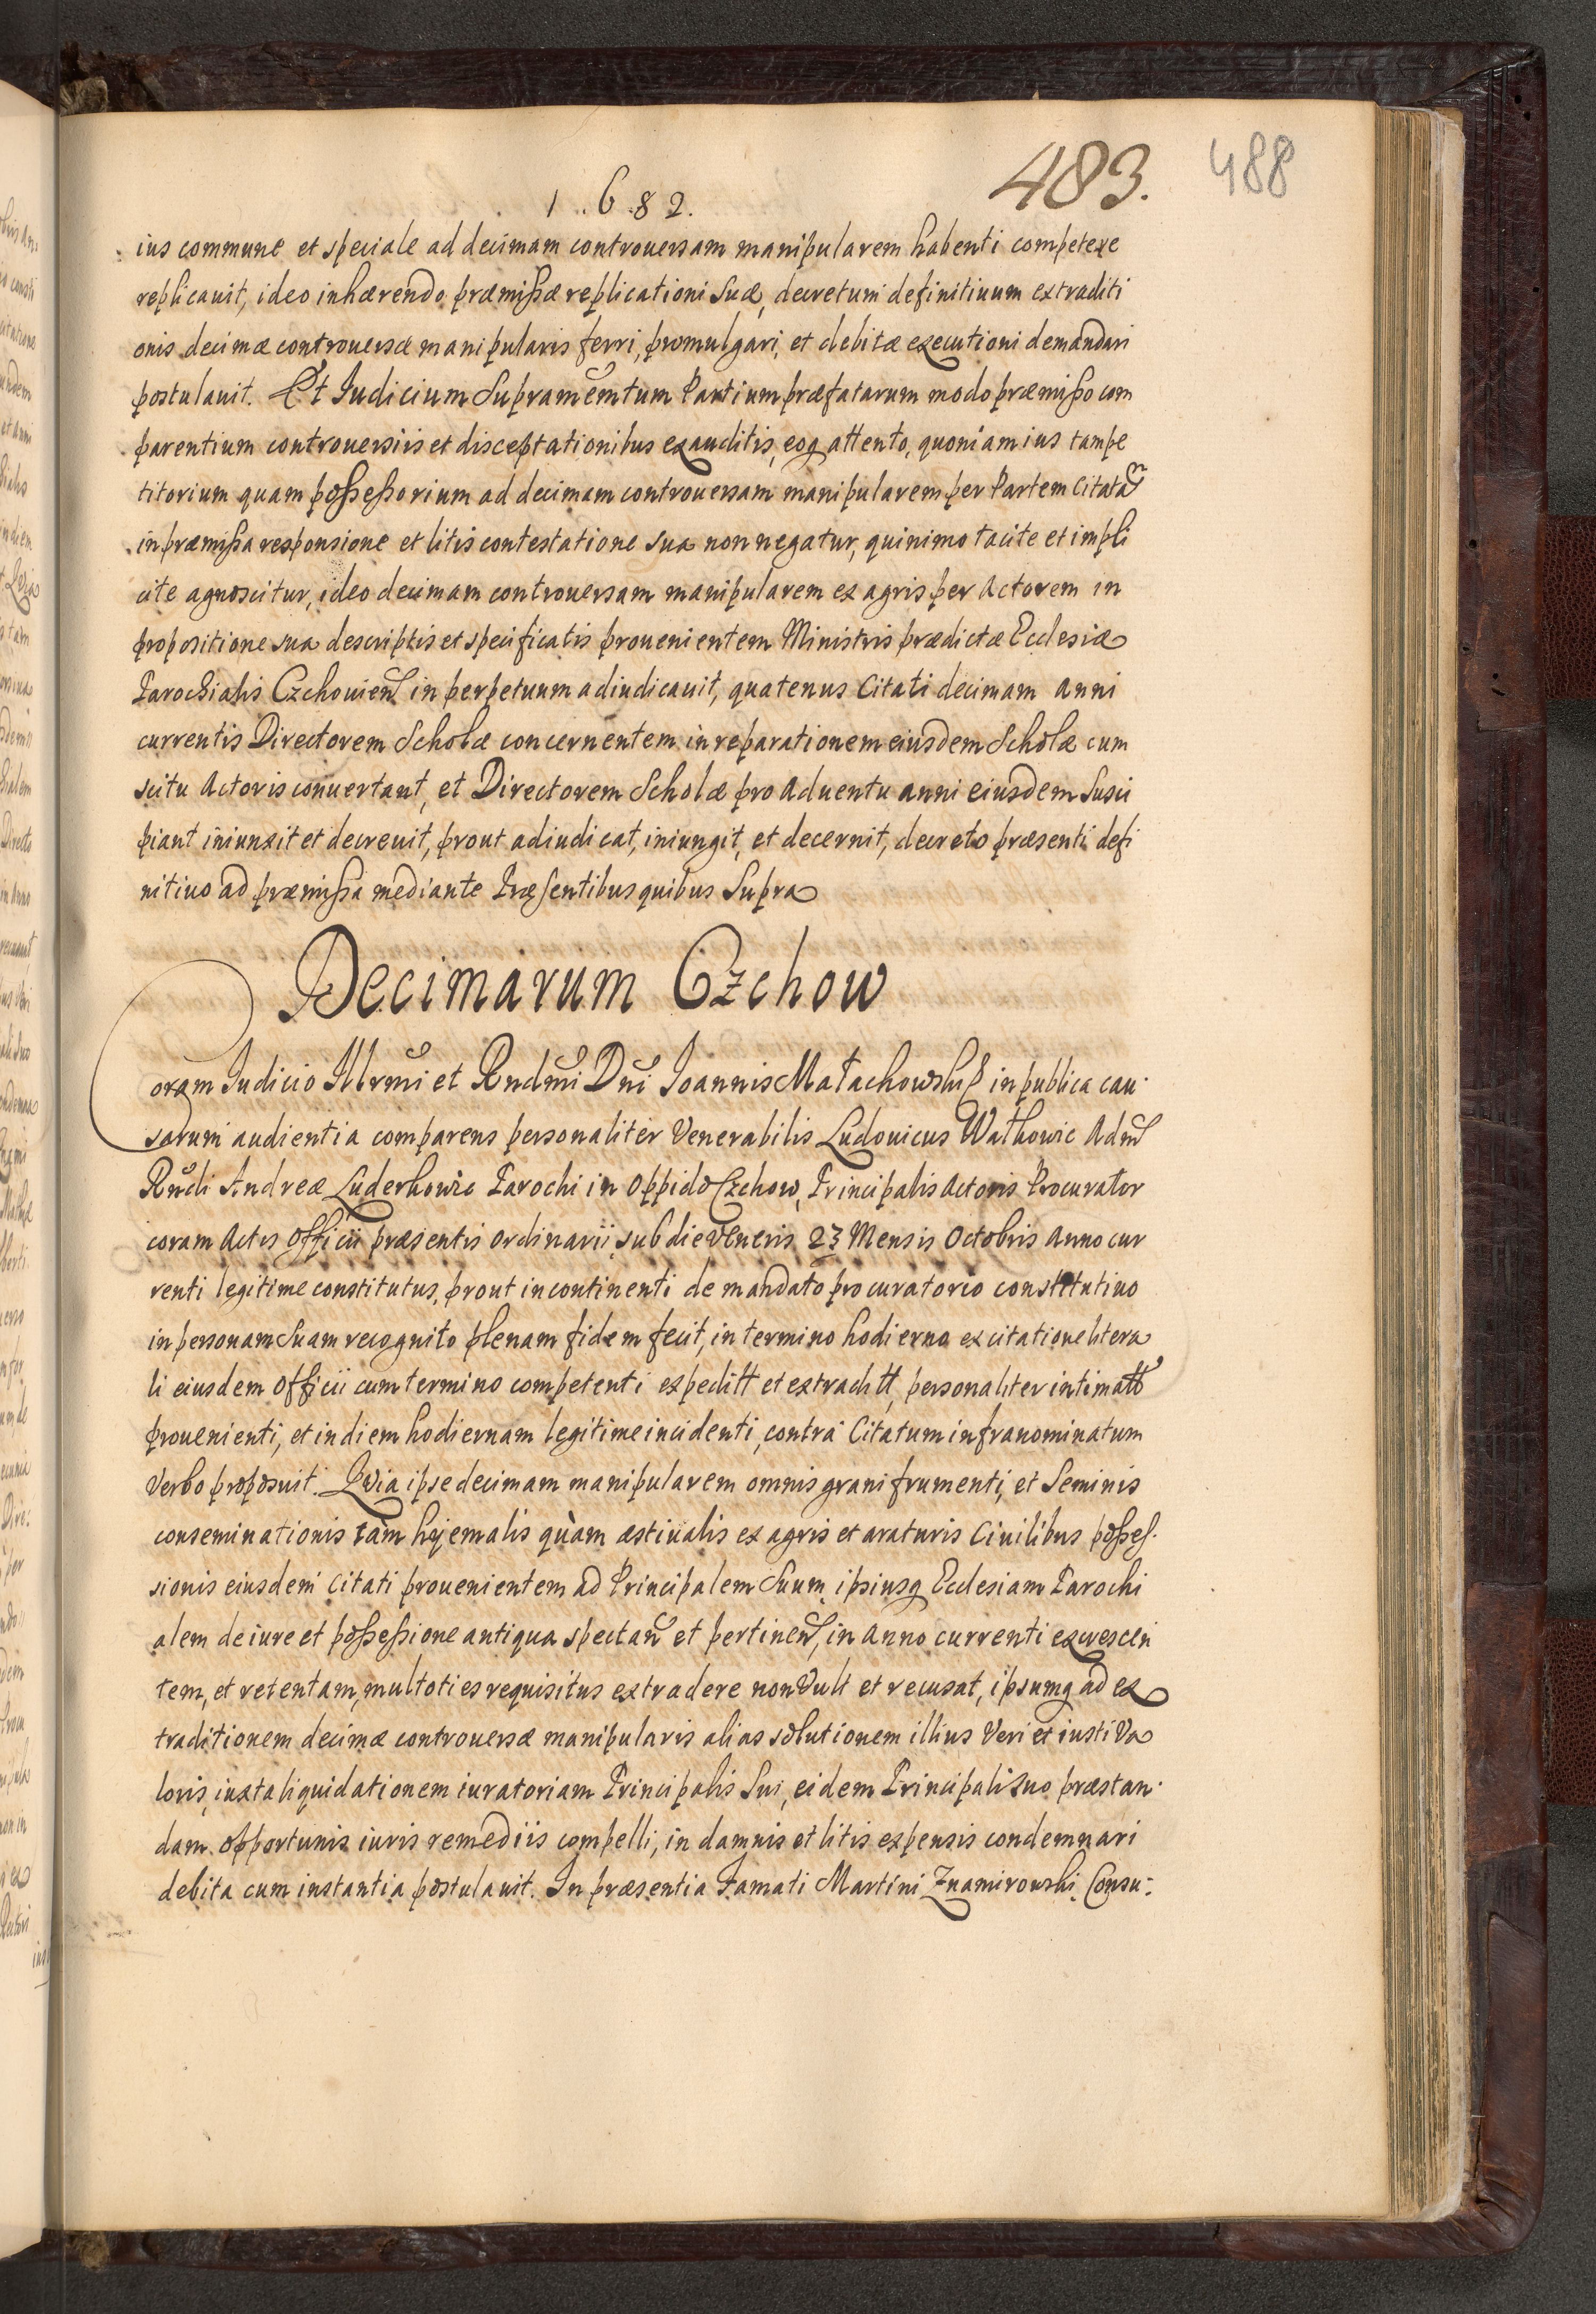 483. 488
1.6.82.
ius commune et speciale ad decimam controuersam manipularem habenti competere
replicauit, ideo inhærendo præmissæ replicationi suæ, decretum definitiuum extraditi
onis decimæ controuersæ manipularis ferri, promulgari, et debitæ executioni demandari
postulauit. Et Iudicium Supramẽmtum Partium præfatarum modo præmisso com
parentium controuersiis et disceptationibus exauditis, eoq attento, quoniam ius tam pe
titorium quam possessorium ad decimam controuersam manipularem per Partem Citatam
in præmissa responsione et litis contestatione sua non negatur, quinimo tacite et impli
cite agnoscitur, ideo decimam controuersam manipularem ex agris per Actorem in
propositione sua descriptis et specificatis prouenientem Ministris prædictæ Ecclesiæ
Parochialis Czchouien in perpetuum adiudicauit, quatenus Citati decimam anni
currentis Directorem Scholæ concernentem in reparationem eiusdem Scholæ cum
scitu Actoris conuertant, et Directorem Scholæ pro Aduentu anni eiusdem Susci
piant iniunxit et decreuit, prout adiudicat, iniungit, et decernit, decreto præsenti defi
nitiuo ad præmissa mediante Præsentibus quibus Supra
Decimarum Czchow
Coram Iudicio Illrmi et Rndmi Dni Ioannis Małachowski in publica cau
sarum audientia comparens personaliter Venerabilis Ludouicus Wathowic Adm
Rndi Andreæ Luderkowic Parochi in Oppido Czchow, Principalis Actoris Procurator
coram Actis Officii præsentis ordinarii sub die Veneris 23 Mensis Octobris Anno cur
renti legitime constitutus, prout in continenti de mandato procuratorio constitutiuo
in personam Suam recognito plenam fidem fecit, in termino hodierno ex citatione litera
li eiusdem Officii cum termino competenti expeditt et extraditt, personaliter intimatt
prouenienti, et in diem hodiernam legitime incidenti, contra Citatum infranominatum
Verbo proposuit. Quia ipse decimam manipularem omnis grani frumenti, et Seminis
conseminationis tàm hyemalis quàm æstiualis ex agris et araturis Ciuilibus posses
sionis eiusdem Citati prouenientem ad Principalem Suum, ipsiusq Ecclesiam Parochi
alem de iure et possessione antiqua spectan et pertinen, in Anno currenti excrescen
tem, et retentam, multoties requisitus extradere non Vult et recusat, ipsumq ad ex
traditionem decimæ controuersæ manipularis alias solutionem illius Veri et iusti Va
loris, iuxta liquidationem iuratoriam Principalis Sui, eidem Principali Suo præstan
dam opportunis iuris remediis compelli, in damnis et litis expensis condemnari
debita cum instantia postulauit. In præsentia Famati Martini Znamirowski Consu-